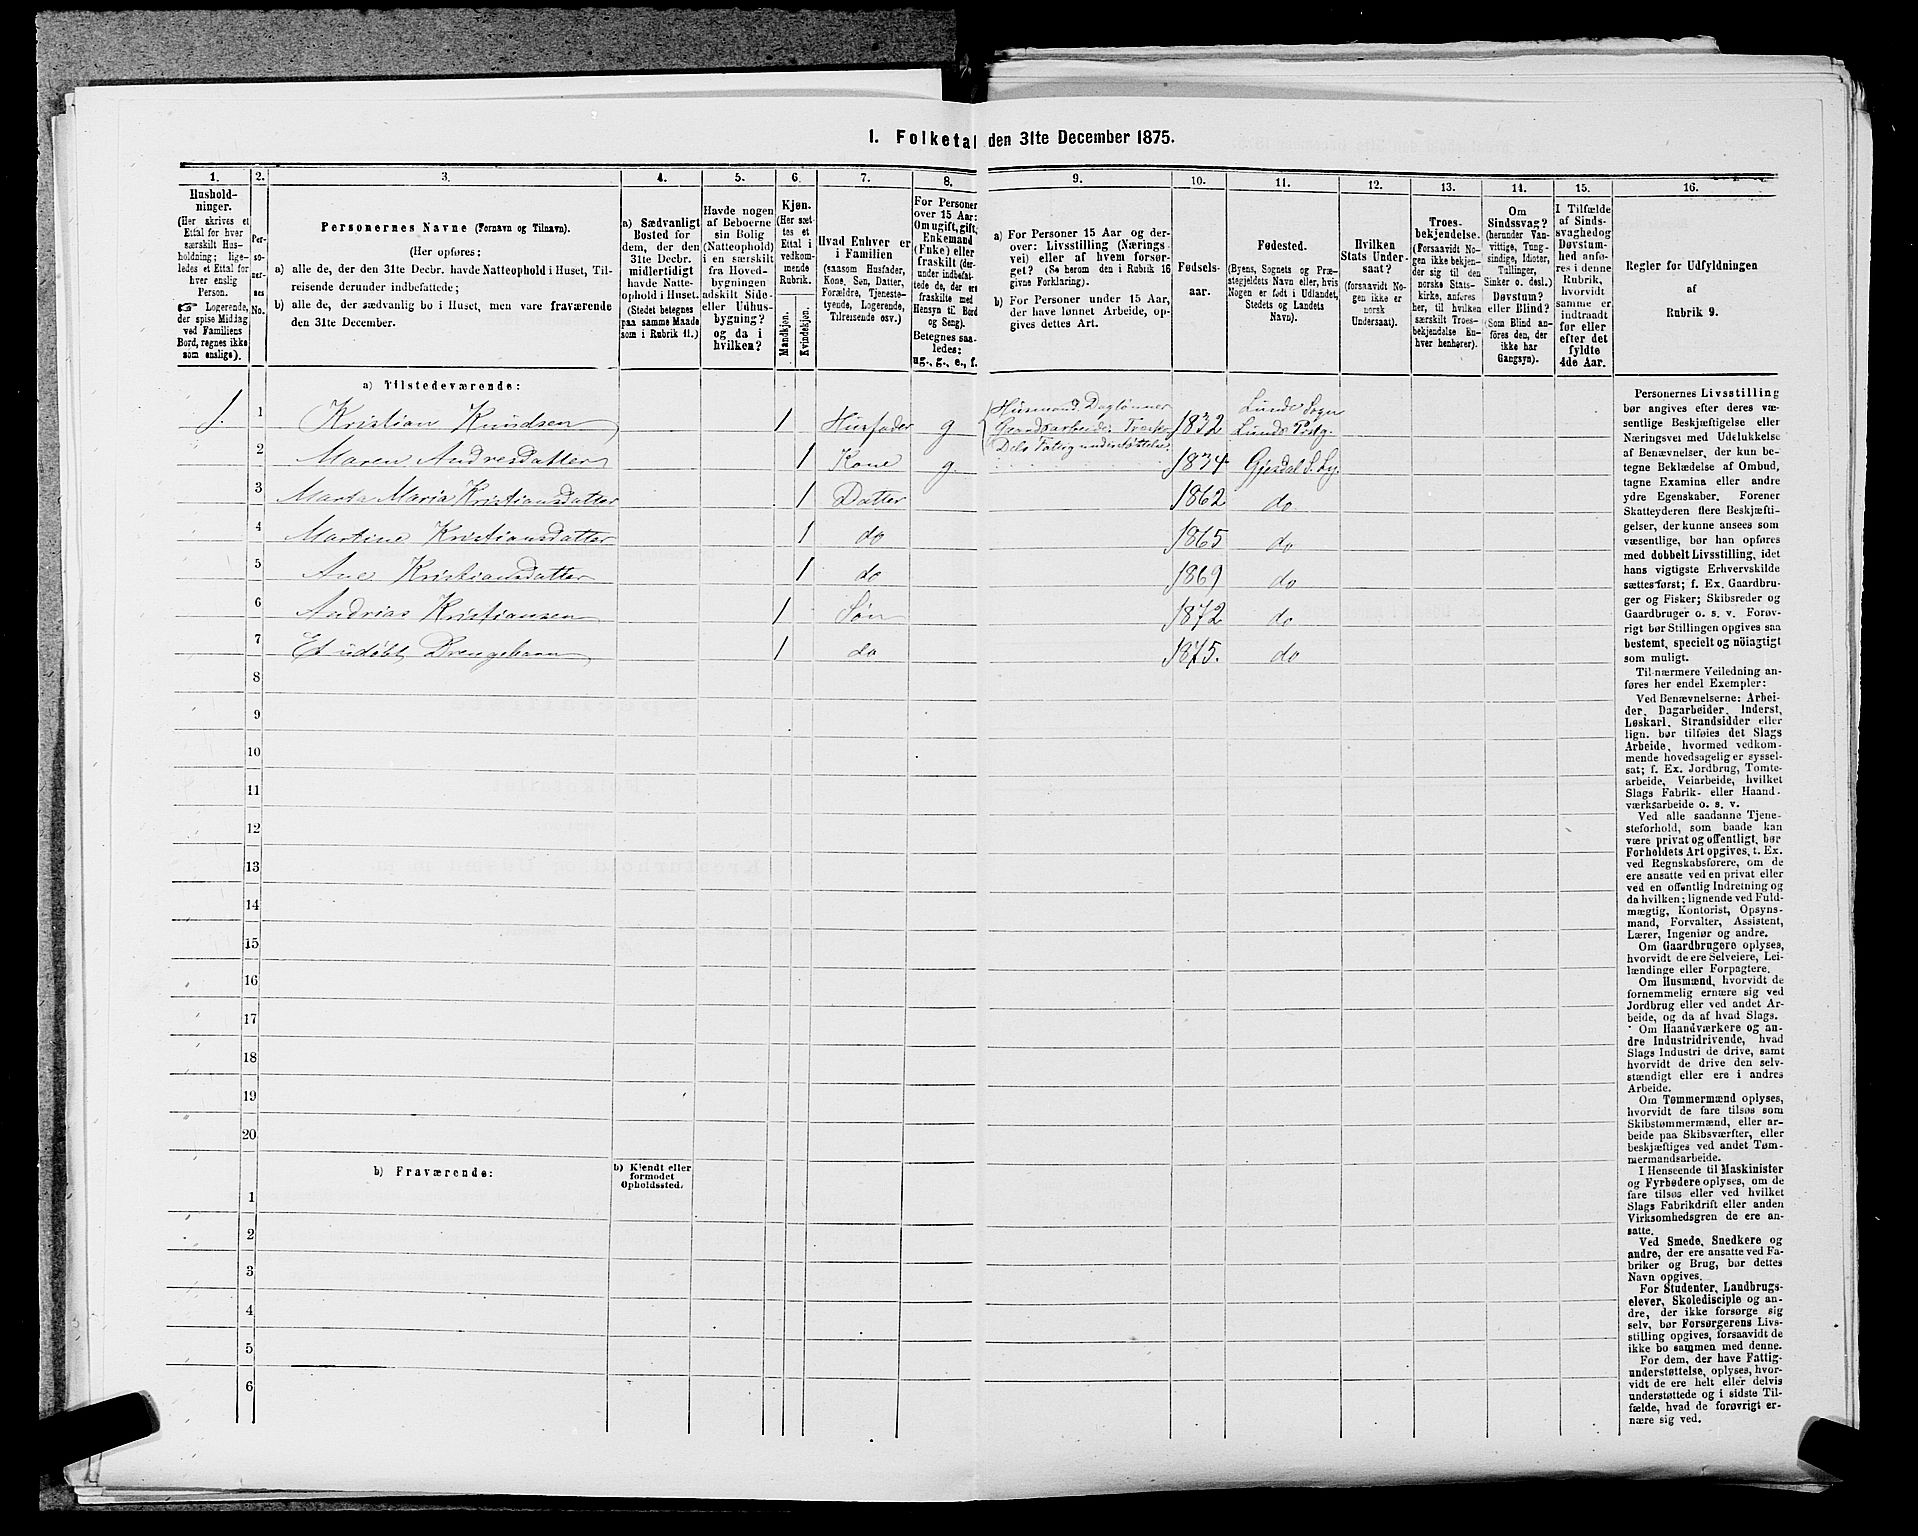 1. Folketal den 31te December 1875.
1.
Hushold-
ninger.
(Her skrives et
Ettal for hver
særskilt Hus-
holdning; lige-
ledes et Ettal for
hver enslig
Person.
☞ Logerende,
der spise Middag
ved Familiens
Bord, regnes ikke
som enslige).
2.
Per-
so-
ner-
nes
No.
3.
Personernes Navne (Fornavn og Tilnavn).
(Her opføres:
a) alle de, der den 31te Decbr. havde Natteophold i Huset, Til-
reisende derunder indbefattede;
b) alle de, der sædvanlig bo i Huset, men vare fraværende
den 31te December.
4.
a) Sædvanligt
Bosted for
dem, der den
31te Decbr.
midlertidigt
havde Natte-
ophold i Huset.
(Stedet betegnes
paa samme Maade
som i Rubrik 11.)
5.
Havde nogen
af Beboerne
sin Bolig
(Natteophold)
i en særskilt
fra Hoved-
bygningen
adskilt Side-
eller Udhus-
bygning?
og da i
hvilken?
6.
Kjøn.
(Her sæt-
tes et
Ettal i
vedkom-
mende
Rubrik.
Mandkjøn.
Kvindekjøn.
7.
Hvad Enhver er
i Familien
(saasom Husfader,
Kone, Søn, Datter,
Forældre, Tjeneste-
tyende, Logerende,
Tilreisende osv.)
8.
For Personer
over 15 Aar:
Om ugift, gift,
Enkemand
(Enke) eller
fraskilt (der-
under indbefat-
tede de, der ere
fraskilte med
Hensyn til Bord
og Seng).
Betegnes saa-
ledes:
ug., g., e., f.
9.
a) For Personer 15 Aar og der-
over: Livsstilling (Nærings-
vei) eller af hvem forsør-
get? (Se herom den i Rubrik 16
givne Forklaring).
b) For Personer under 15 Aar,
der have lønnet Arbeide, op-
gives dettes Art.
10.
Fødsels-
aar.
11.
Fødested.
(Byens, Sognets og Præ-
stegjeldets Navn eller, hvis
Nogen er født i Udlandet,
Stedets og Landets
Navn).
12.
Hvilken
Stats Under-
saat?
(forsaavidt No-
gen ikke er
norsk
Undersaat).
13.
Troes-
bekjendelse.
(Forsaavidt No-
gen ikke bekjen-
der sig til den
norske Stats-
kirke, anføres
her, til hvilken
særskilt Troes-
bekjendelse En-
hver henhører).
14.
Om
Sindssvag?
(herunder Van-
vittige, Tung-
sindige, Idioter,
Tullinger,
Sinker o. desl.)
Døvstum?
eller Blind?
(Som Blind an-
føres den, der
ikke har
Gangsyn).
15.
I Tilfælde
af Sinds-
svaghed og
Døvstum-
hed anfø-
res i denne
Rubrik,
hvorvidt
samme er
indtraadt
før eller
efter det
fyldte
4de Aar.
16.
Regler for Udfyldningen
af
Rubrik 9.
a) Tilstedeværende:
1. 1 Kristian Knudsen 1 Husfader g Husmand. Dagtønner Gaardsarbeide. 1832 Lunde Sogn Lunde Pstg.
2 Maren Andresdatter 1 Kone g. Dels Fattigunderstøttelse. 1834 Gjesdal S. Ly.
3 Marta Maria Kristiansdatter 1 Datter 1862 do
4 Martine Kristiansdatter 1 do 1865 do
5 Ane Kristiansdatter 1 do 1869 do
6 Andrias Kristiansen 1 Søn 1872 do
7 Et udøbt Drengebarn 1 do 1875. do
8
9
10
11
12
13
14
15
16
17
18
19
20
b) Fraværende:
b) Kjendt eller
formodet
Opholdssted.
1
2
3
4
5
6
Personernes Livsstilling
bør angives efter deres væ-
sentlige Beskjæftigelse eller
Næringsvei med Udelukkelse
af Benævnelser, der kun be-
tegne Beklædelse af Ombud,
tagne Examina eller andre
ydre Egenskaber. Forener
Skatteyderen flere Beskjæfti-
gelser, der kunne ansees som
væsentlige, bør han opføres
med dobbelt Livsstilling, idet
hans vigtigste Erhvervskilde
sættes først; f. Ex. Gaardbru-
ger og Fisker; Skibsreder og
Gaardbruger o. s. v. Forøv-
rigt bør Stillingen opgives saa
bestemt, specielt og nöiagtigt
som muligt.
Til nærmere Veiledning an-
føres her endel Exempler:
Ved Benævnelserne: Arbei-
der, Dagarbeider, Inderst,
Løskarl, Strandsidder eller
lign. bør tilføies det Slags
Arbeide, hvormed vedkom-
mende hovedsagelig er syssel-
sat; f. Ex. Jordbrug, Tomte-
arbeide, Veiarbeide, hvilket
Slags Fabrik- eller Haand-
værksarbeide o. s. v.
Ved alle saadanne Tjene-
steforhold, som baade kan
være privat og offentligt, bør
Forholdets Art opgives, t. Ex.
ved Regnskabsførere, om de
ere ansatte ved en privat eller
ved en offentlig Indretning og
da hvilken; lignende ved Fuld-
mægtig, Kontorist, Opsyns-
mand, Forvalter, Assistent,
Lærer, Ingeniør og andre.
Om Gaardbrugere oplyses,
hvorvidt de ere Selveiere, Lei-
lændinge eller Forpagtere.
Om Husmænd, hvorvidt de
fornemmelig ernære sig ved
Jordbrug eller ved andet Ar-
beide, og da af hvad Slags.
Om Haandværkere og an-
dre Industridrivende, hvad
Slags Industri de drive, samt
hvorvidt de drive den selv-
stændigt eller ere i andres
Arbeide.
Om Tømmermænd oplyses,
hvorvidt de fare tilsøs som
Skibstømmermænd, eller ar-
beide paa Skibsværfter, eller
beskjæftiges ved andet Tøm-
mermandsarbeide.
I Henseende til Maskinister
og Fyrbødere oplyses, om de
fare tilsøs eller ved hvilket
Slags Fabrikdrift eller anden
Virksomhedsgren de ere an-
satte.
Ved Smede, Snedkere og
andre, der ere ansatte ved Fa-
briker og Brug, bør dettes
Navn opgives.
For Studenter, Landbrugs-
elever, Skoledisciple og an-
dre, der ikke forsørge sig
selv, bør Forsørgerens Livs-
stilling opgives, forsaavidt de
ikke bo sammen med denne.
For dem, der have Fattig-
understøttelse, oplyses, hvor-
vidt de ere helt eller delvis
understøttede og i sidste Til-
fælde, hvad de forøvrigt er-
nære sig ved.